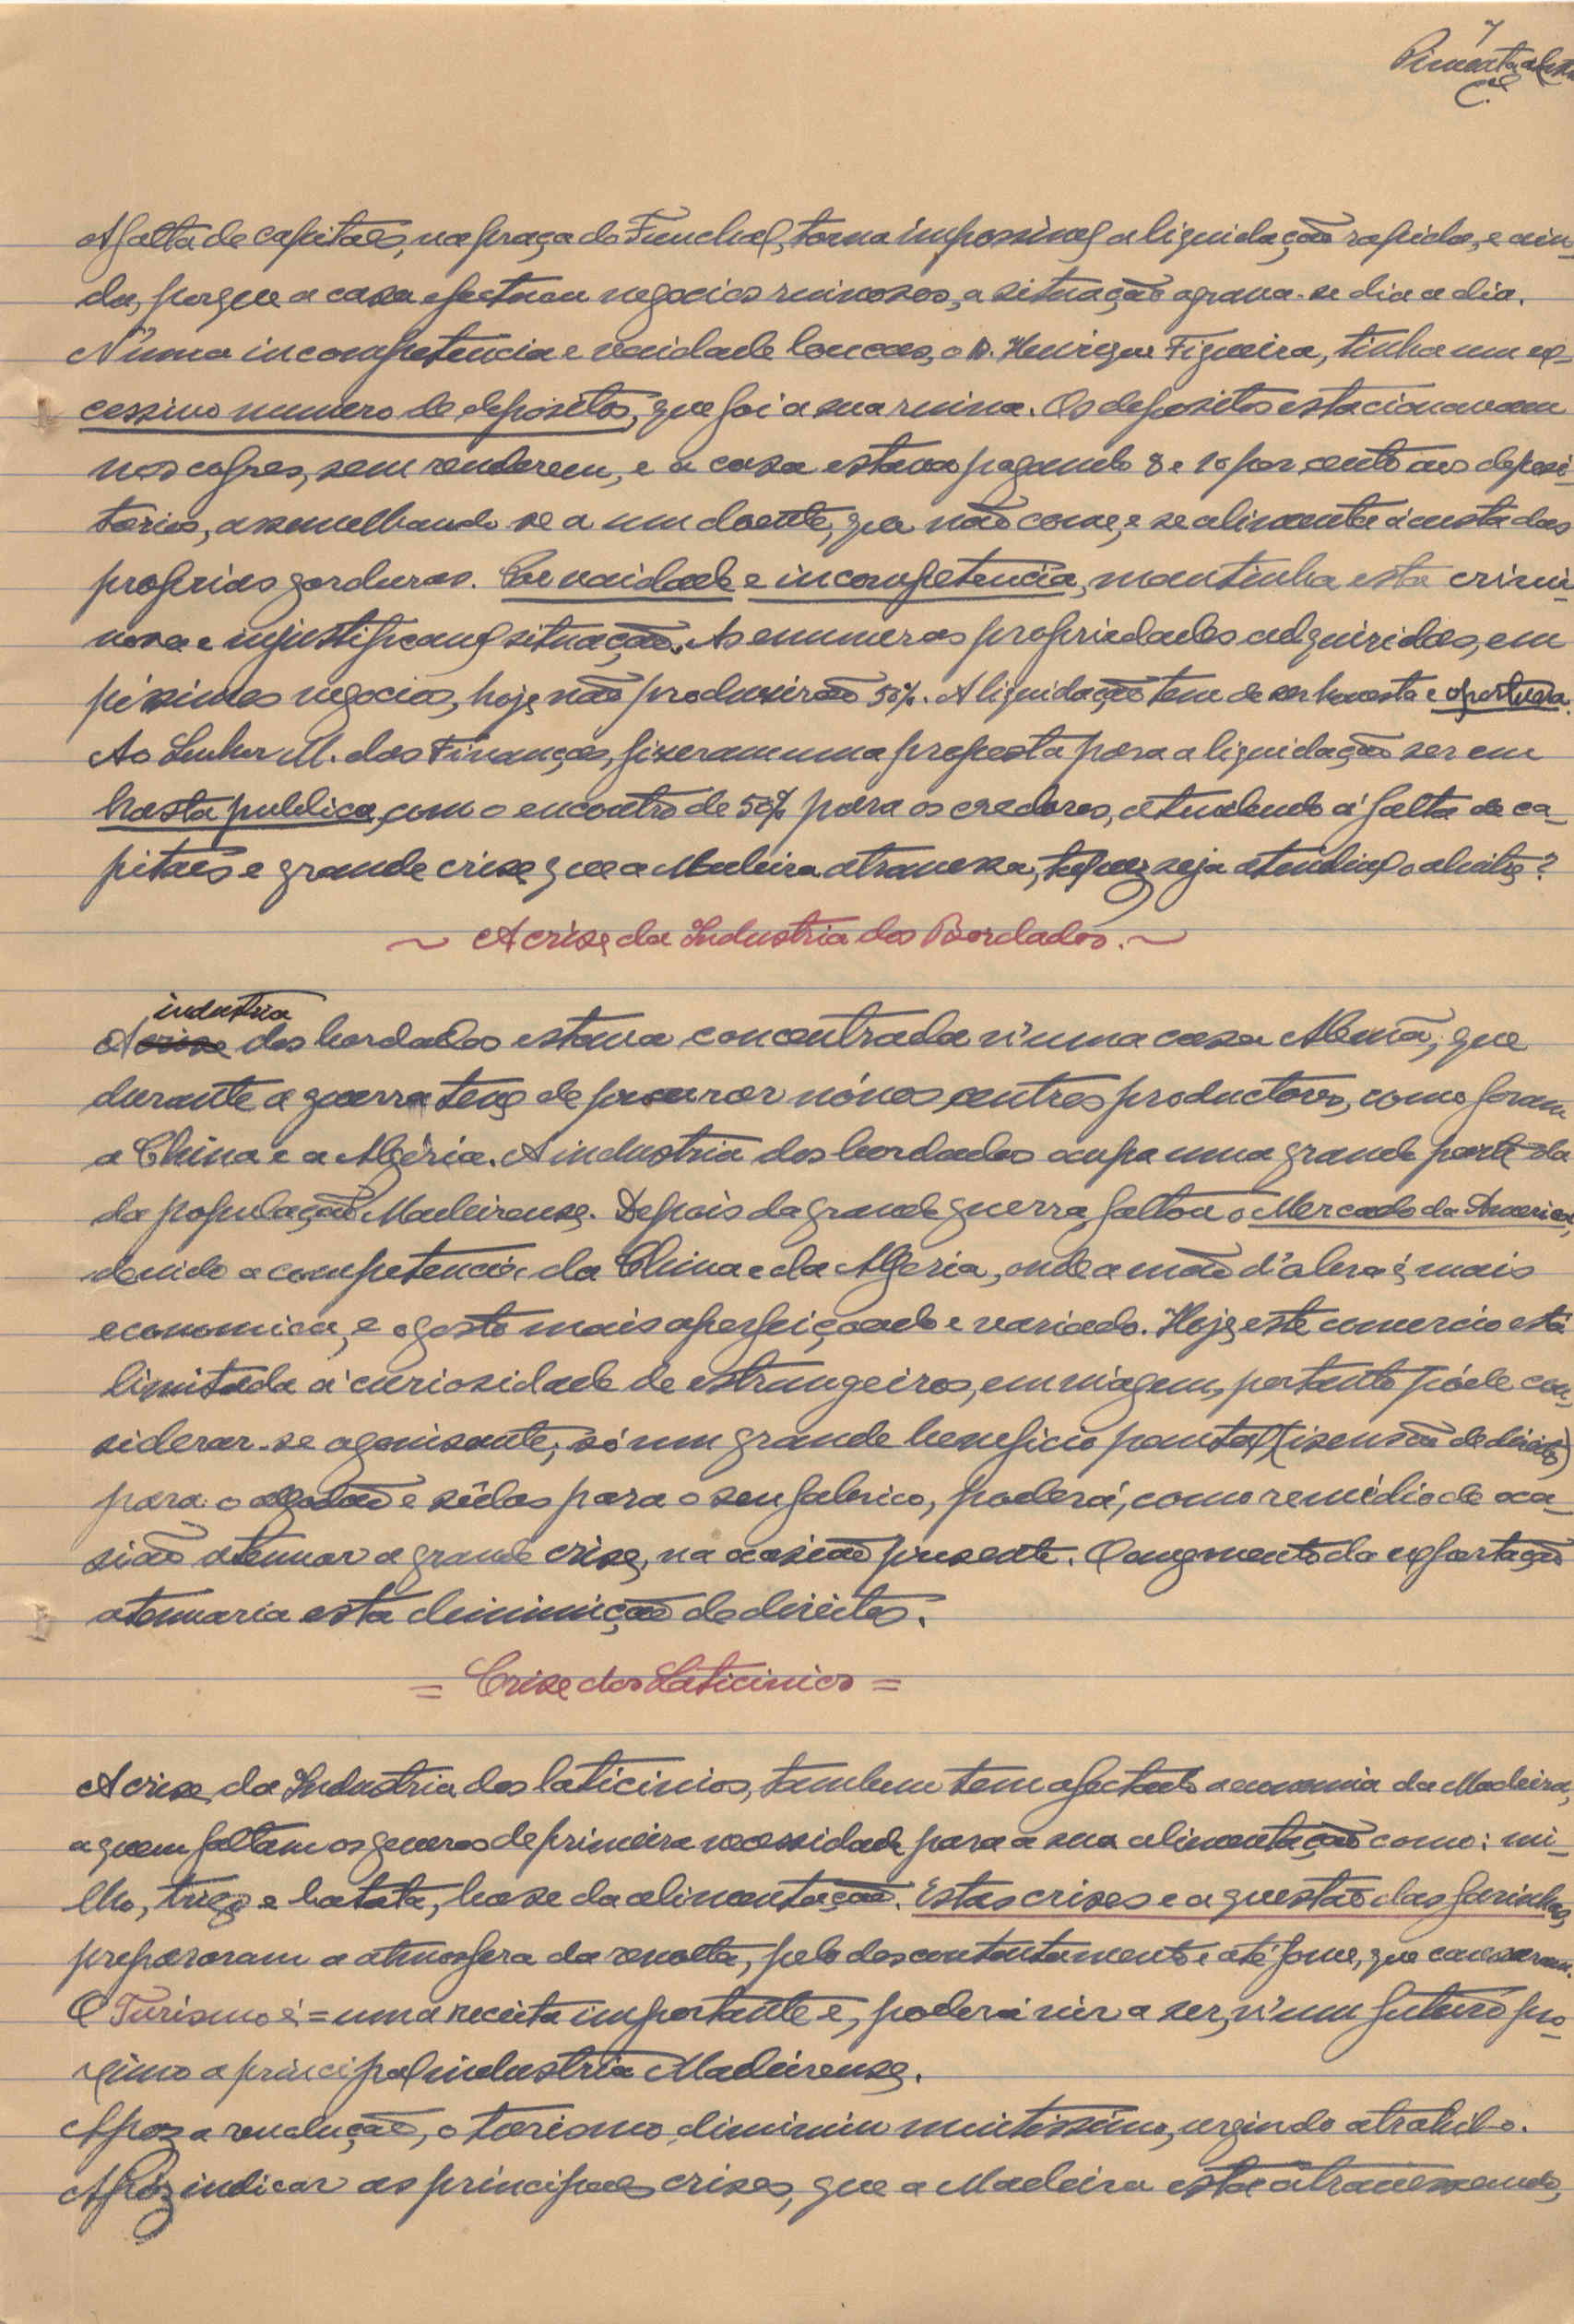 7
Pimenta de Castro
Cel
A falta de capitaes, na praça do Funchal, torna impossivel a liquidação rapida, e ain-
da, porque a casa efectuou negocios ruinosos, a situação agrava-se dia a dia.
N'uma incompetencia e vaidade loucas, o D. Henrique Figueira, tinha um ex-
cessivo numero de depositos, que foi a sua ruina. Os depositos estacionavam
nos cofres, sem renderem, e a casa estava pagando 8 e 10 por cento aos deposi-
tarios, assemelhando-se a um doente, que não come, e se alimenta á custa das
proprias gorduras. Por vaidade e incompetencia, mantinha esta crimi-
nosa e injustificavel situação. As enumeras propriedades adquiridas, em
péssimos negocios, hoje não produzirão 50%. A liquidação tem de ser honesta e oportuna.
Ao Senhor M. das Finanças, fizeram uma proposta para a liquidação ser em
hasta publica, com o encontro de 50% para os credores, atendendo á falta de ca-
pitaes e grande crise que a Madeira atravessa, talvez seja atendivel o alvitre?
~ A crise da Industria dos Bordados. ~
industria
A crise dos bordados estava concentrada n'uma casa Alemã, que
durante a guerra teve de procurar nóvos centros productores, como foram
a China e a Algéria. A industria dos bordados ocupa uma grande parte da
da população Madeirense. Depois da grande guerra, faltou o Mercado da America,
devido a competencia da China e da Algeria, onde a mão d'obra é mais
economica, e o gosto mais aperfeiçoado e variado. Hoje este comercio está
limitado á curiosidade de estrangeiros, em viagem, portanto póde con-
siderar-se agonisante; só um grande beneficio pautal (isensão de direitos)
para o algodão e sêdas para o seu fabrico, poderá, como remédio de oca-
sião atenuar a grande crise, na ocasião presente. O augmento da exportação
atenuaria esta diminuição de direitos.
= Crise dos Laticinios =
A crise da Industria dos laticinios, tambem tem afectado a economia da Madeira,
a quem faltam os generos de primeira necessidade para a sua alimentação como: mi-
lho, trigo e batata, base da alimentação. Estas crises e a questão das farinhas,
prepararam a atmosfera da revolta, pelo descontentamento e até fome, que causaram.
O Turismo é = uma receita importante e, poderá vir a ser, n'um futuro pro-
ximo a principal industria Madeirense.
Apoz a revolução, o turismo diminuiu muitissimo, urgindo atrahil-o.
Apóz indicar as principaes crises, que a Madeira está atravessando,